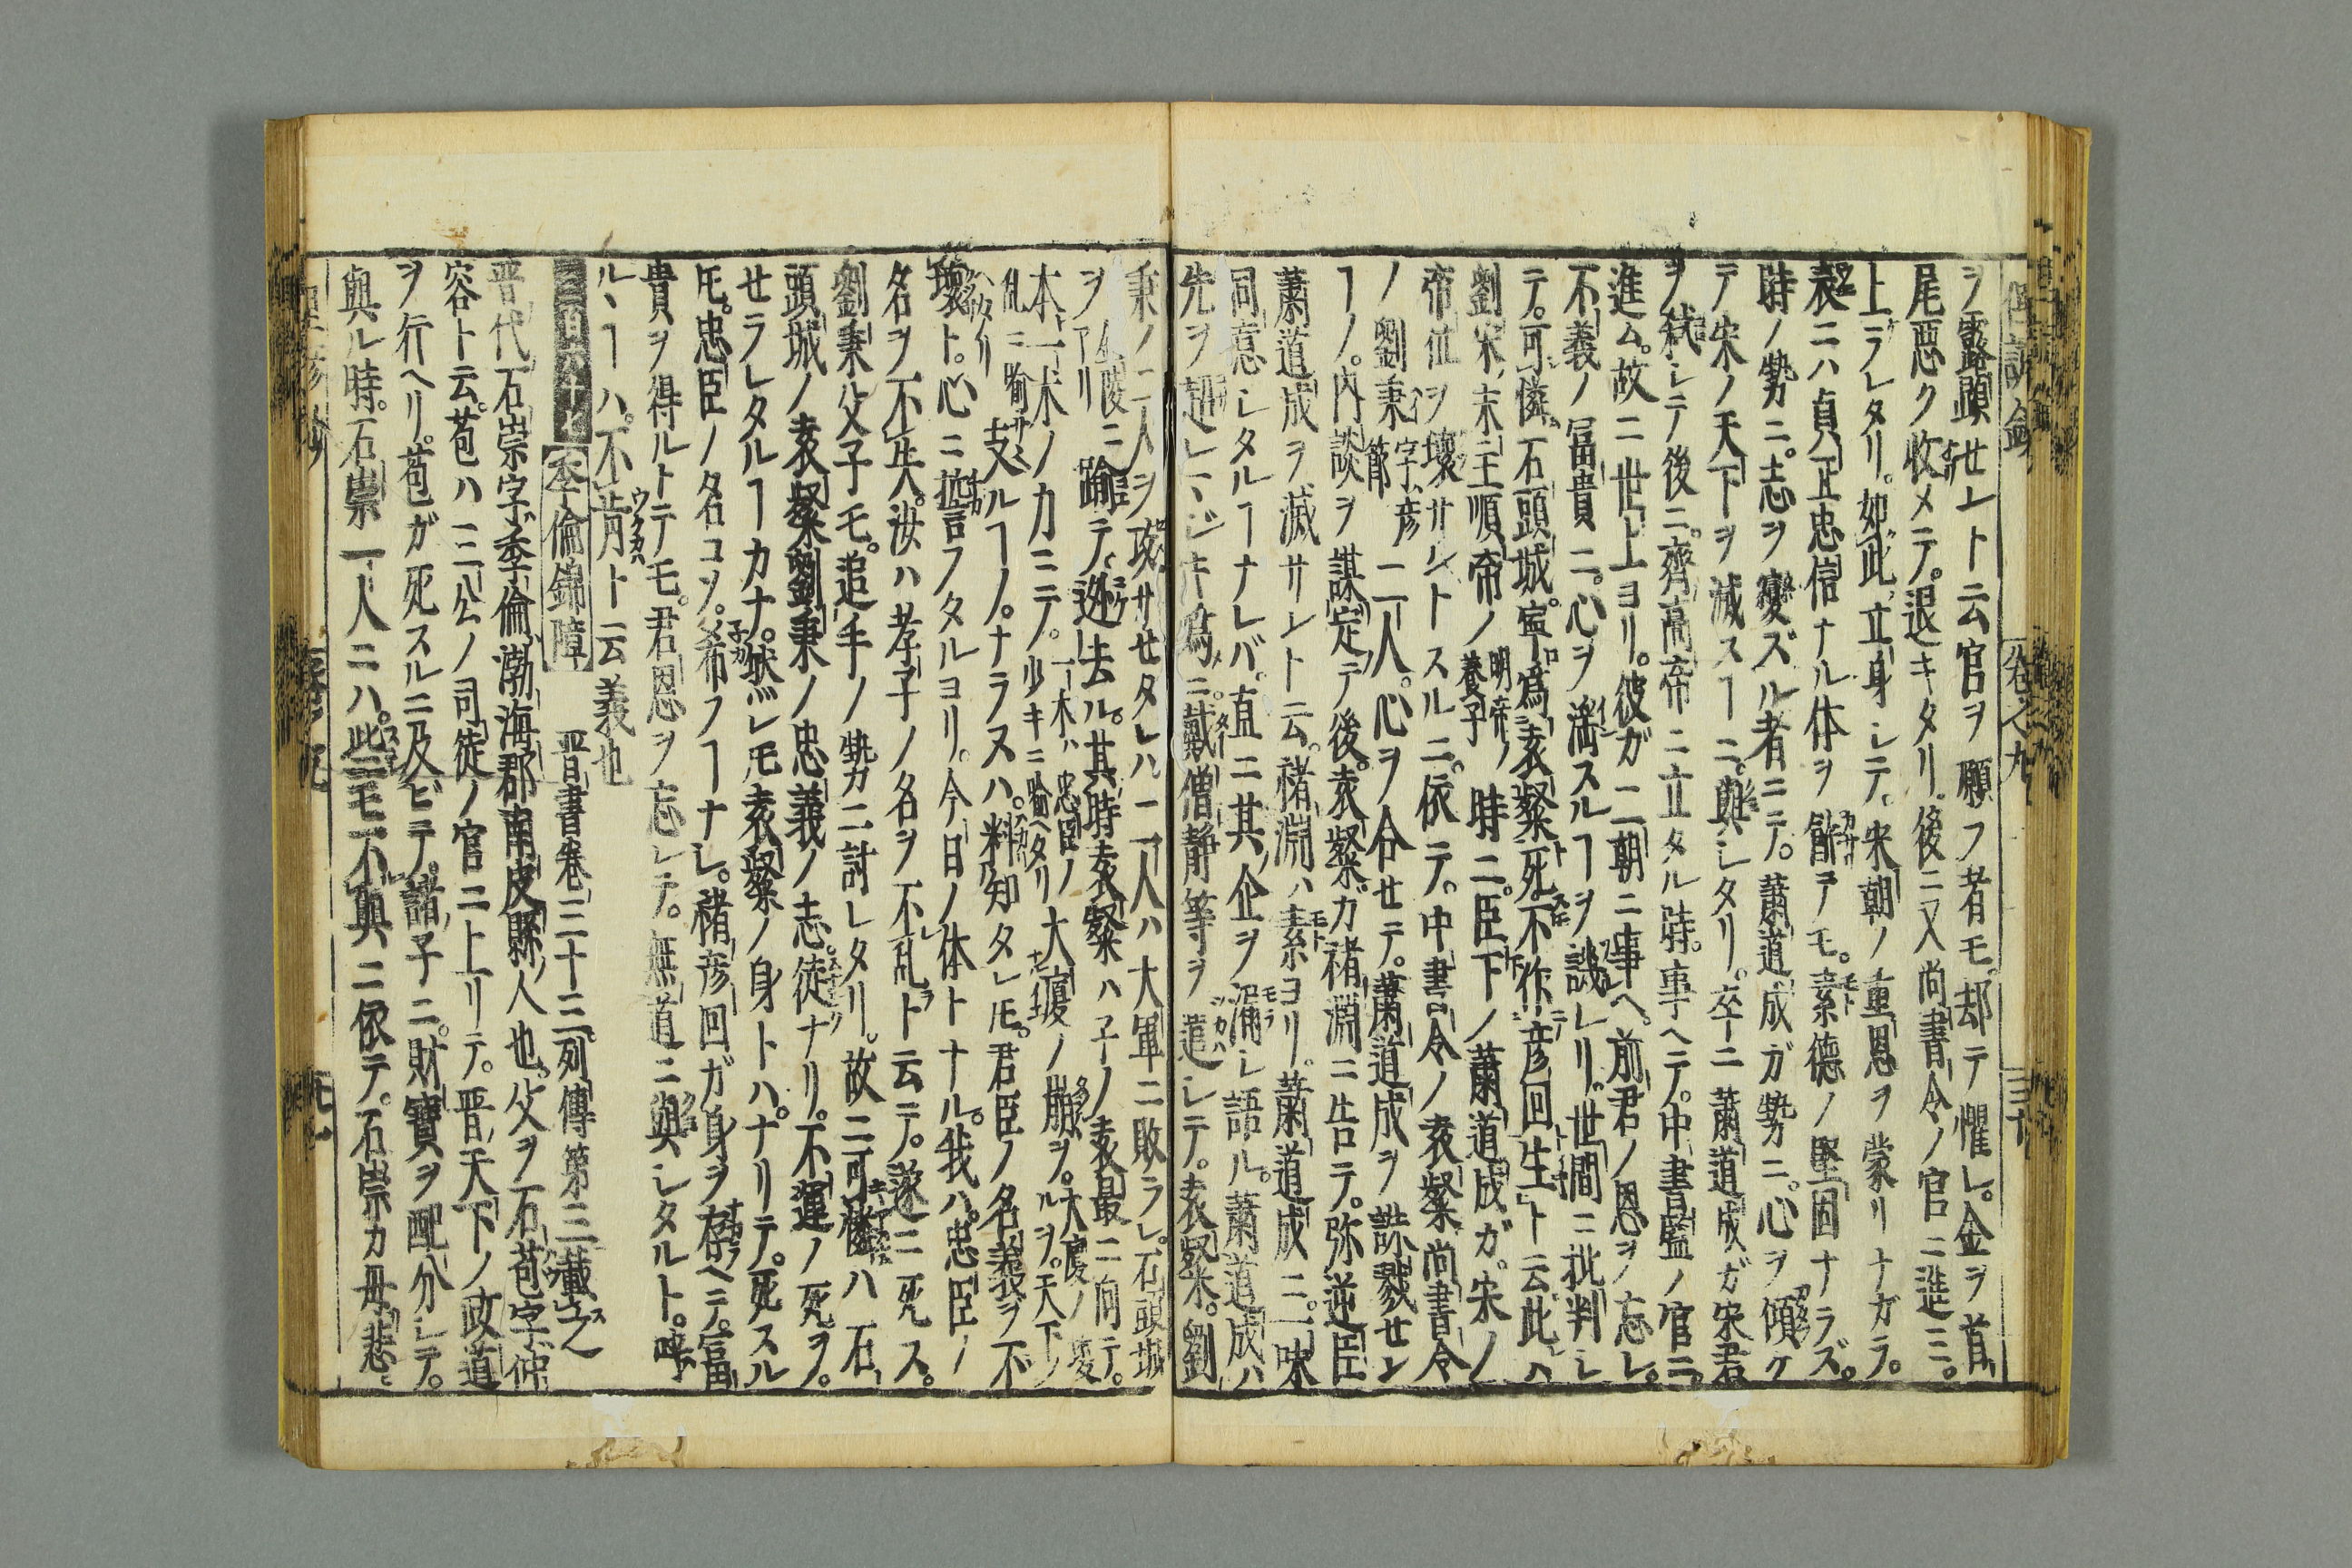 ヲ露顕セレト云官ヲ願フ者モ却テ懼レ。金ヲ首
尾悪ク收メテ。退キタリ。後ニ又尚書令ノ官ニ進ミ。
上ラレタリ。如此立身シテ。宋朝ノ重恩ヲ蒙リナガラ。
表ニハ貞正忠信ナル体ヲ餝ヲモ。素德ノ堅固ナラズ。
時ノ勢ニ。志ヲ變ズル者ニテ。蕭道成ガ勢ニ。心ヲ傾ケ
テ宋ノ天下ヲ滅スヿニ。與シタリ。卒ニ蕭道成ガ宋君
ヲ弑シテ後ニ。齊高帝ニ立タル時。事ヘテ。中書監ノ官ニ。
進ム。故ニ世上ヨリ。彼ガ二朝ニ事ヘ。前君ノ恩ヲ忘レ。
不義ノ冨貴ニ。心ヲ滛スルヿヲ譏レリ。世間ニ批判シ
テ。可憐石頭城。寧為袁粲死不作彦回生ト云此ハ
劉宋ノ末主順帝ノ明帝ノ養子時ニ。臣下ノ蕭道成ガ。宋ノ
帝位ヲ壞サントスルニ。依テ。中書令ノ袁粲尚書令
ノ劉秉字彦節二人。心ヲ合セテ。蕭道成ヲ誅戮セン
ヿノ。内談ヲ謀定テ後。袁粲ガ褚淵ニ告テ。弥逆臣
蕭道成ヲ滅サント云。褚淵ハ素ヨリ。蕭道成ニ。一味
同意シタルヿナレバ。直ニ其企ヲ漏シ語ル。蕭道成ハ
先ヲ越レマジキ為ニ。戴僧靜等ヲ遣シテ。袁粲。劉
秉ノ二人ヲ攻サセタレハ二人ハ大軍ニ敗ラレ。石頭城
ヲ踰テ迯去ル。其時袁粲ハ子ノ袁最ニ向テ。
本一木ノ力ニテ。大厦ノ崩ヲ。
支ルヿノ。ナラヌハ。料知タレ𪜈。君臣ノ名義ヲ不
壞ト。心ニ誓フタルヨリ。今日ノ体トナル。我ハ。忠臣ノ
名ヲ不失。汝ハ孝子ノ名ヲ不乱ト云テ。遂ニ死ス。
劉秉父子モ。追手ノ勢ニ討レタリ。故ニ可憐ハ石
頭城ノ袁粲劉秉ノ忠義ノ志。徒ナリ。不運ノ死ヲ。
セラレタルヿカナ。然レ𪜈袁粲ノ身トハ。ナリテ。死スル
𪜈。忠臣ノ名コヲ。希フヿナレ。褚彦回ガ身ヲ存ヘテ。富
貴ヲ得ルトテモ。君恩ヲ忘レテ。無道ニ與シタルト。
ルヽヿハ。不肯ト云義也
季倫錦障 晋書巻三十三列傳第三載之
晋代石崇字季倫渤海郡南皮縣ノ人也。父ヲ石苞字仲
容ト云。苞ハ三公ノ司徒ノ官ニ上リテ。晋天下ノ政道
ヲ行ヘリ。苞ガ死スルニ及ビテ。諸子ニ。財寶ヲ配分シテ。
與ル時。石崇一人ニハ。些モ不與ニ依テ。石崇カ母悲ミ